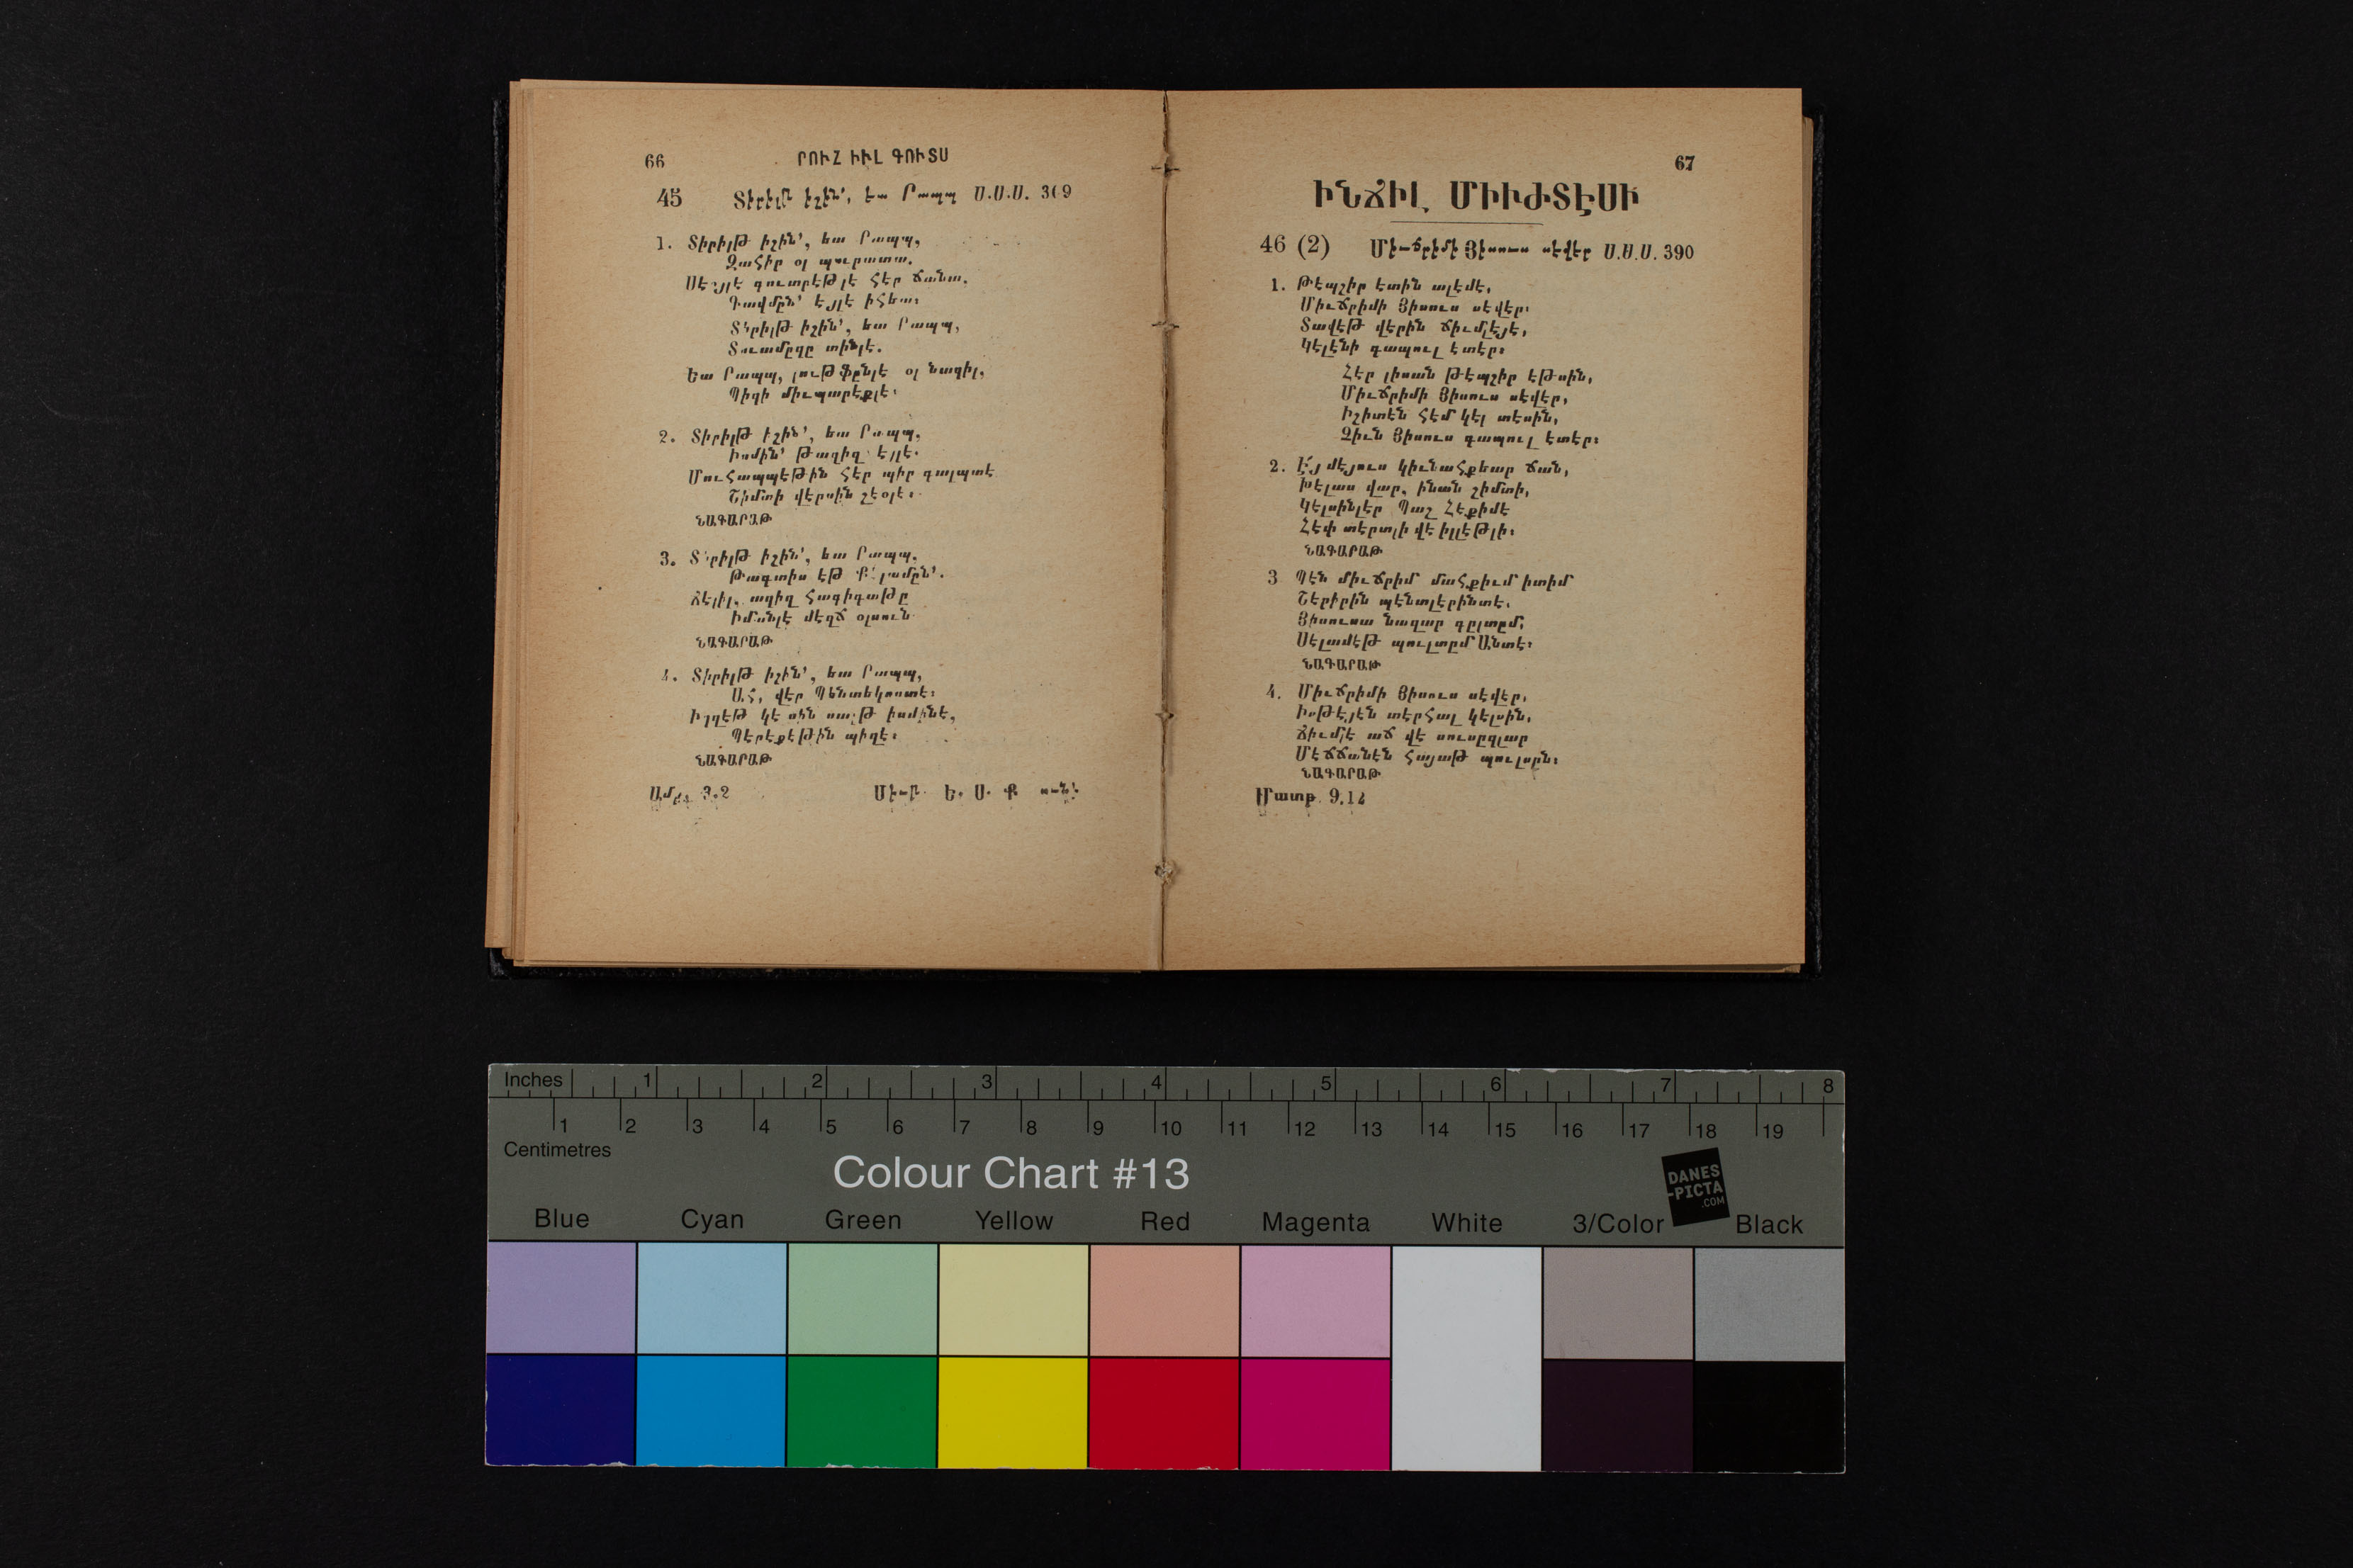 66 ՐՈՒՀ ԻՒԼ ԳՈՒՏՍ
45 Տիրիլթ իշին՚, եա Րապպ Ս.Ս.Ս. 309
1. Տիրիլթ իշին՚, եա Րապպ,
Զահիր օլ պուրատա.
Սէօյլէ գուտրէթլէ հէր ճանա.
Գավմըն՚ էյլէ իհեա։
Տիրիլթ իշին՚, եա Րապպ,
Տուամըզը տինլէ.
Եա Րապպ, լութֆընլէ օլ նազիլ,
Պիզի միւպարէքլէ։
2. Տիրիլթ իշին՚, եա Րապպ,
Իսմին՚ թազիզ էյլէ.
Մուհապպէթին հէր պիր գալպտէ
Շիմտի վէրսին շէօլէ։
ՆԱԳԱՐԱԹ
3. Տիրիլթ իշին՚, եա Րապպ.
Թագտիս էթ Քէլամըն՚.
Ճէլիլ, ազիզ հագիգաթը
Իմանլէ մէղճ օլսուն
ՆԱԳԱՐԱԹ
4. Տիրիլթ իշին՚, եա Րապպ,
Ահ, վէր Պենտեկոստէ։
Իզզէթ կէլսին սաֆթ իսմինե,
Պէրէքէթին պիզէ։
ՆԱԳԱՐԱԹ
Ամբ. 3.2 Միւր. Ե. Ս. Ք
67
ԻՆՃԻԼ ՄԻՒԺՏԷՍԻ
46 (2) Միւճրիմի Յիսուս սէվէր Ս.Ս.Ս. 390
1. Թէպշիր էտին ալէմէ,
Միւճրիմի Յիսուս սէվէր։
Տավէթ վէրին ճիւմլէյէ,
Կելէնի գապուլ էտէր։
Հէր լիսան թէպշիր էթսին,
Միւճրիմի Յիսուս սէվէր,
Իշիտէն հէմ կէլ տէսին,
Զիւն Յիսուս գապուլ էտէր։
2. Էյ մէյուս կիւնահքեար ճան,
Խէլաս վար, ինան շիմտի,
Կելսինլէր Պաշ Հէքիմէ
Հէփ տէրտլի վէ իլլէթլի։
ՆԱԳԱՐԱԹ
3 Պէն միւճրիմ մահքիւմ իտիմ
Շէրիրին պէնտլէրինտէ.
Յիսուսա նազար գըլտըմ,
Սէլամէթ պուլտըմ Անտէ։
ՆԱԳԱՐԱԹ
4. Միւճրիմի Յիսուս սէվէր,
Իսթէյէն տէրհալ կելսին,
Ճիւմլէ աճ վէ սուսըզլար
Մէճճանէն հայաթ պուլսըն։
ՆԱԳԱՐԱԹ
Մատթ. 9.12
Inches 1 2 3 4 5 6 7 8
1 2 3 4 5 6 7 8 9 10 11 12 13 14 15 16 17 18 19
Centimetres
Colour Chart #13
DANES
-PICTA
.COM
Blue Cyan Green Yellow Red Magenta White 3/Color Black